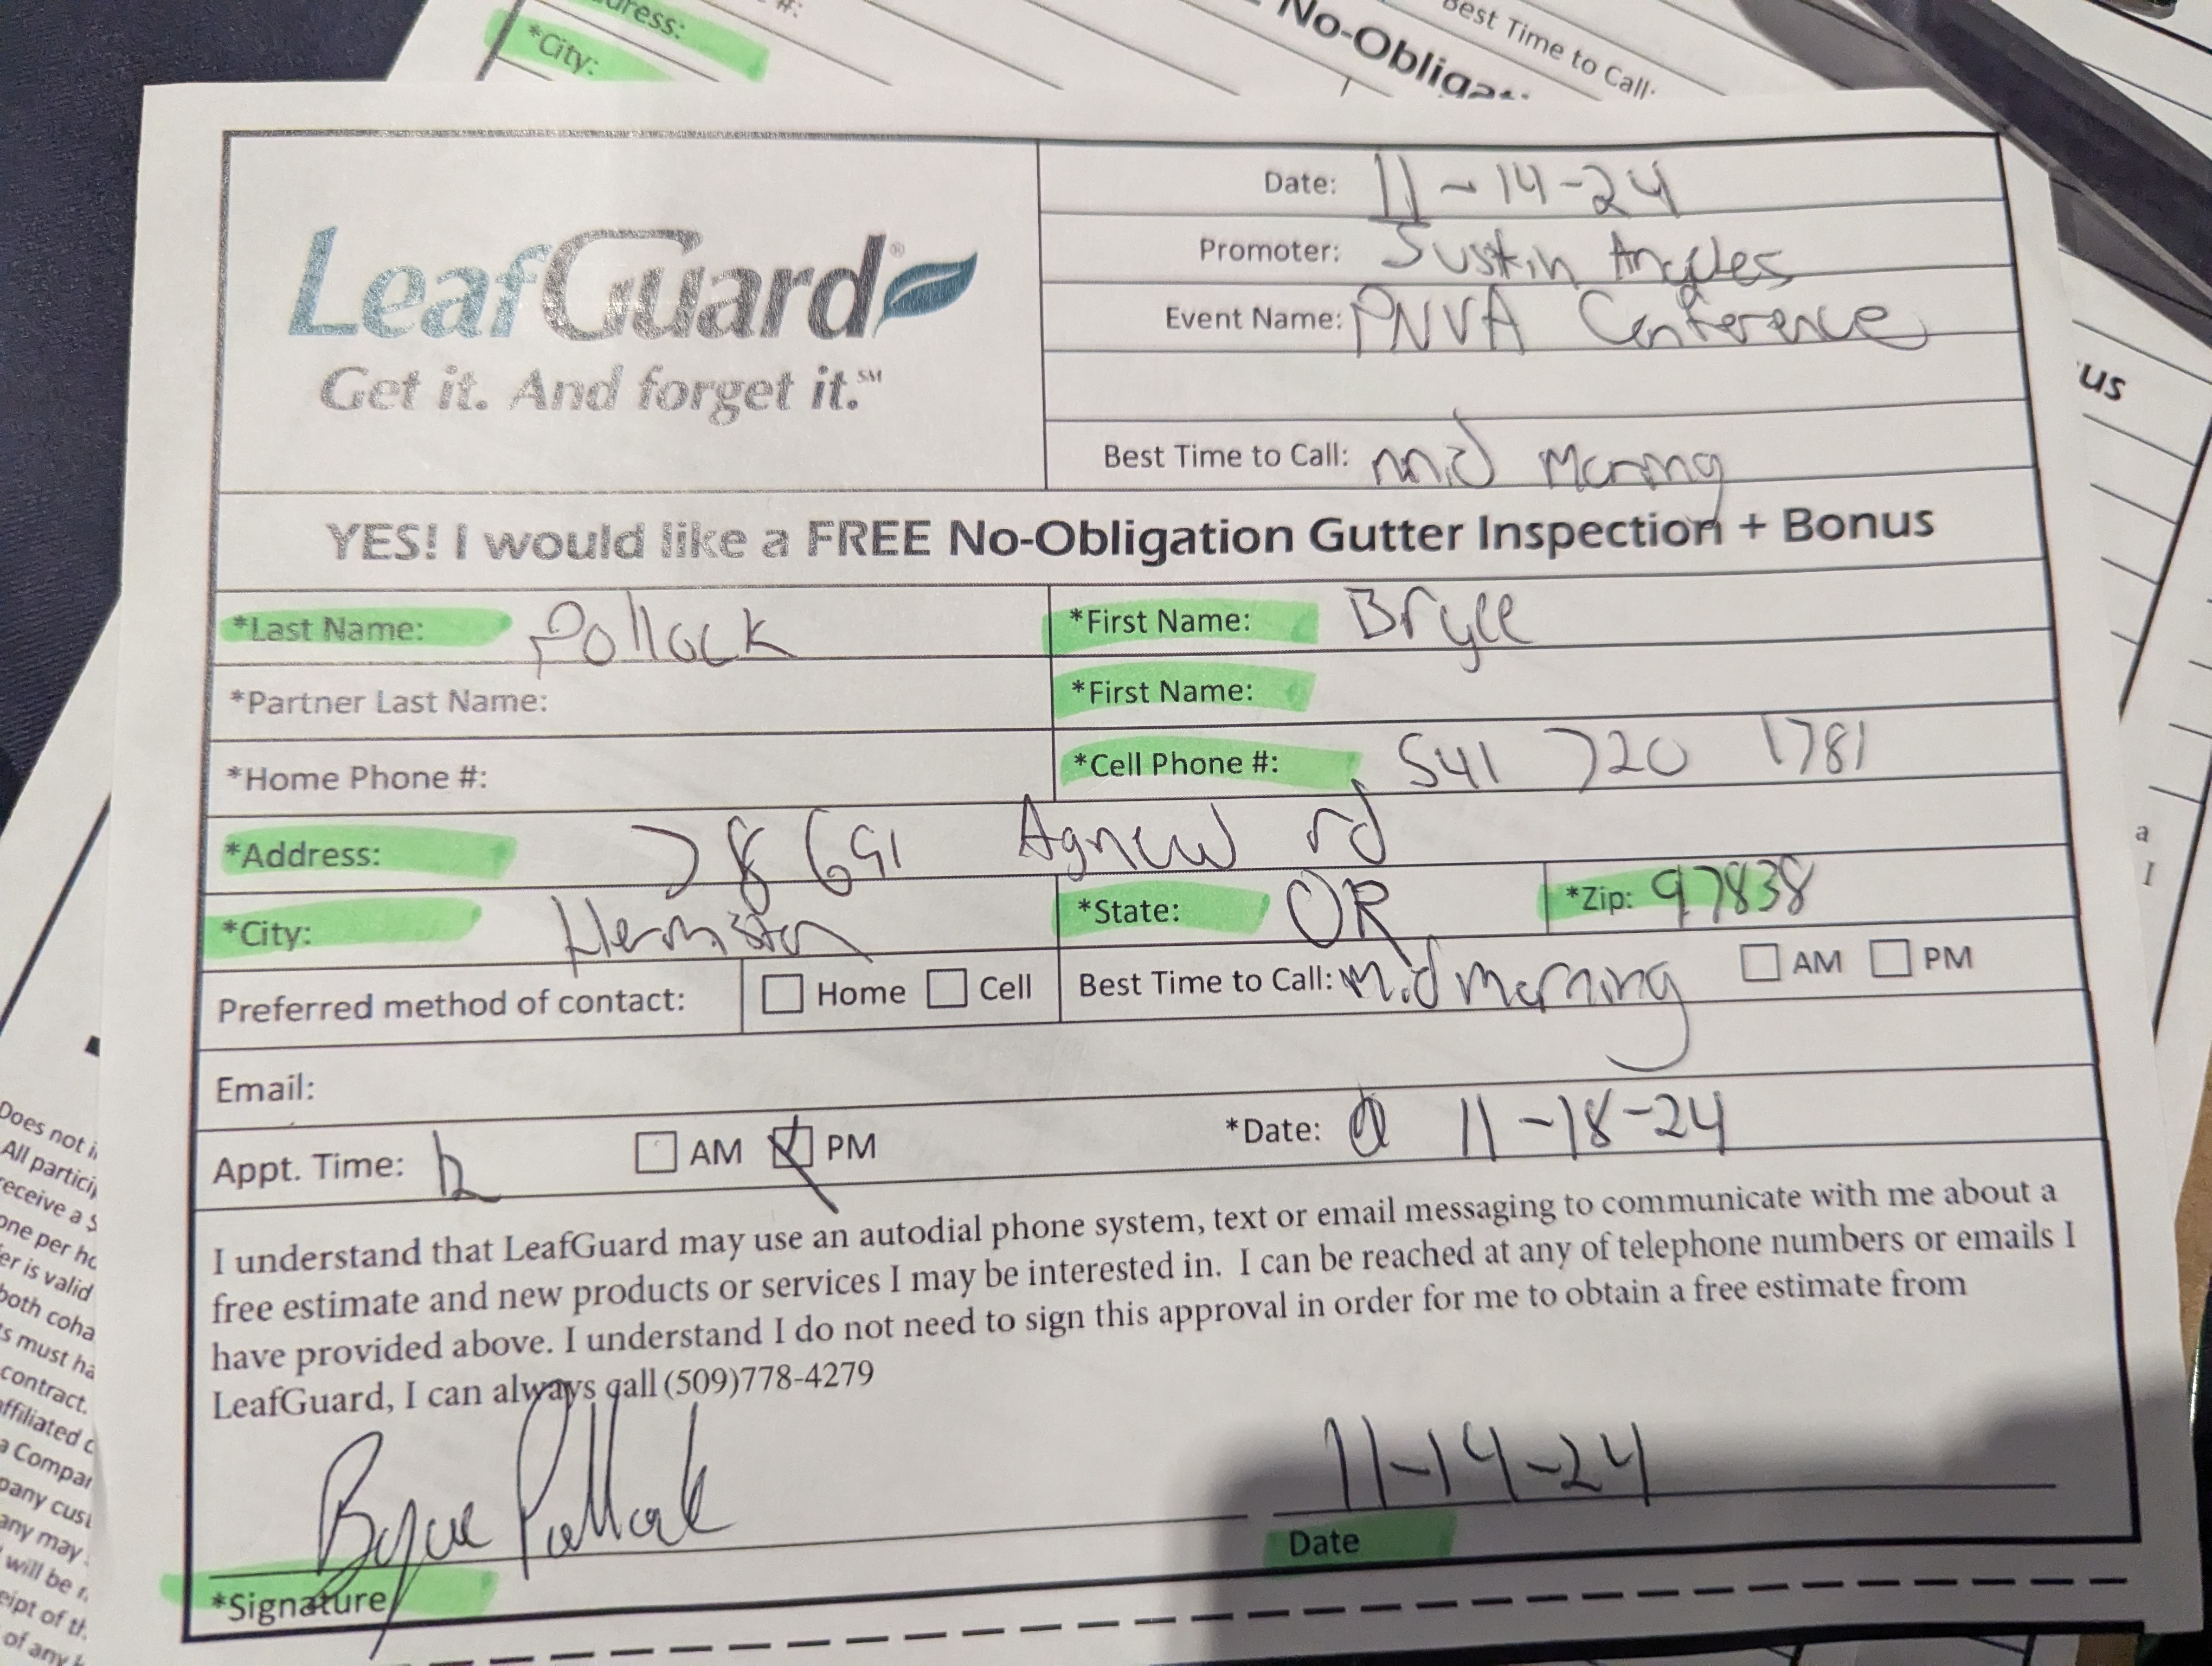 dress:
#:
*City:
No-Obligat
Best Time to Call:
LeafGuard®
Get it. And forget it.℠
Date: 11-14-24
Promoter: Justin
Event Name: PNVA Conference
Best Time to Call: mid morning
YES! I would like a FREE No-Obligation Gutter Inspection + Bonus
*Last Name: Pollock
*First Name: Bryce
*Partner Last Name:
*First Name:
*Home Phone #:
*Cell Phone #: 541 720 1781
*Address: 78691 Agnew rd
*City: Hermiston
*State: OR
*Zip: 97838
Preferred method of contact: Home Cell
Best Time to Call: Mid morning AM PM
Email:
Appt. Time: 12 AM PM
*Date: 11-18-24
I understand that LeafGuard may use an autodial phone system, text or email messaging to communicate with me about a
free estimate and new products or services I may be interested in. I can be reached at any of telephone numbers or emails I
have provided above. I understand I do not need to sign this approval in order for me to obtain a free estimate from
LeafGuard, I can always call (509)778-4279
Bryce Pollock
11-14-24
*Signature
Date
us
a
I
Does not i
All partici
receive a $
one per ho
er is valid
both coha
ts must ha
contract.
affiliated c
a Compar
pany cust
any may
will be r
eipt of th
of any